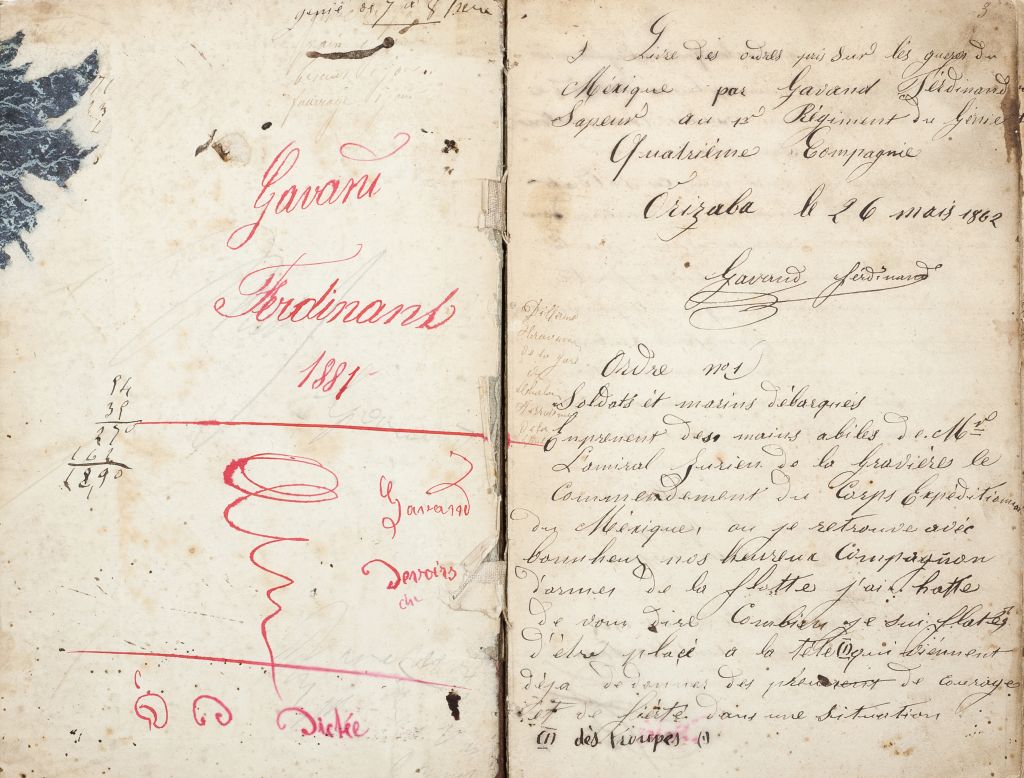 génie de 7 à 8 heure
Gavand
Ferdinand
1881
94
39
Gavand
Devoirs
du
Dictée
3
Livre des ordres pris sur les guerres du
Méxique par Gavand Ferdinand
Sapeur au 1er Régiment du Génie
Quatriéme Compagnie
Orizaba le 26 mais 1862
Gavand Ferdinand
Ordre no 1
Soldats et marins débarqués
Enprenent des mains abiles de Mr
L'amiral Jurien de la Gravière le
Commendement du Corps Expeditionnai
du Méxique, ou je retrouve avéc
bonnheur nos heureux Compagnon
d'armes de la flotte j'ai hatte
de vous dire Combien je sui flatés
D'étre placé a la tête (1) qui viénnent
déja de donner des preuvent de courage
et de fierté dans une situation
(1) des troupes (1)